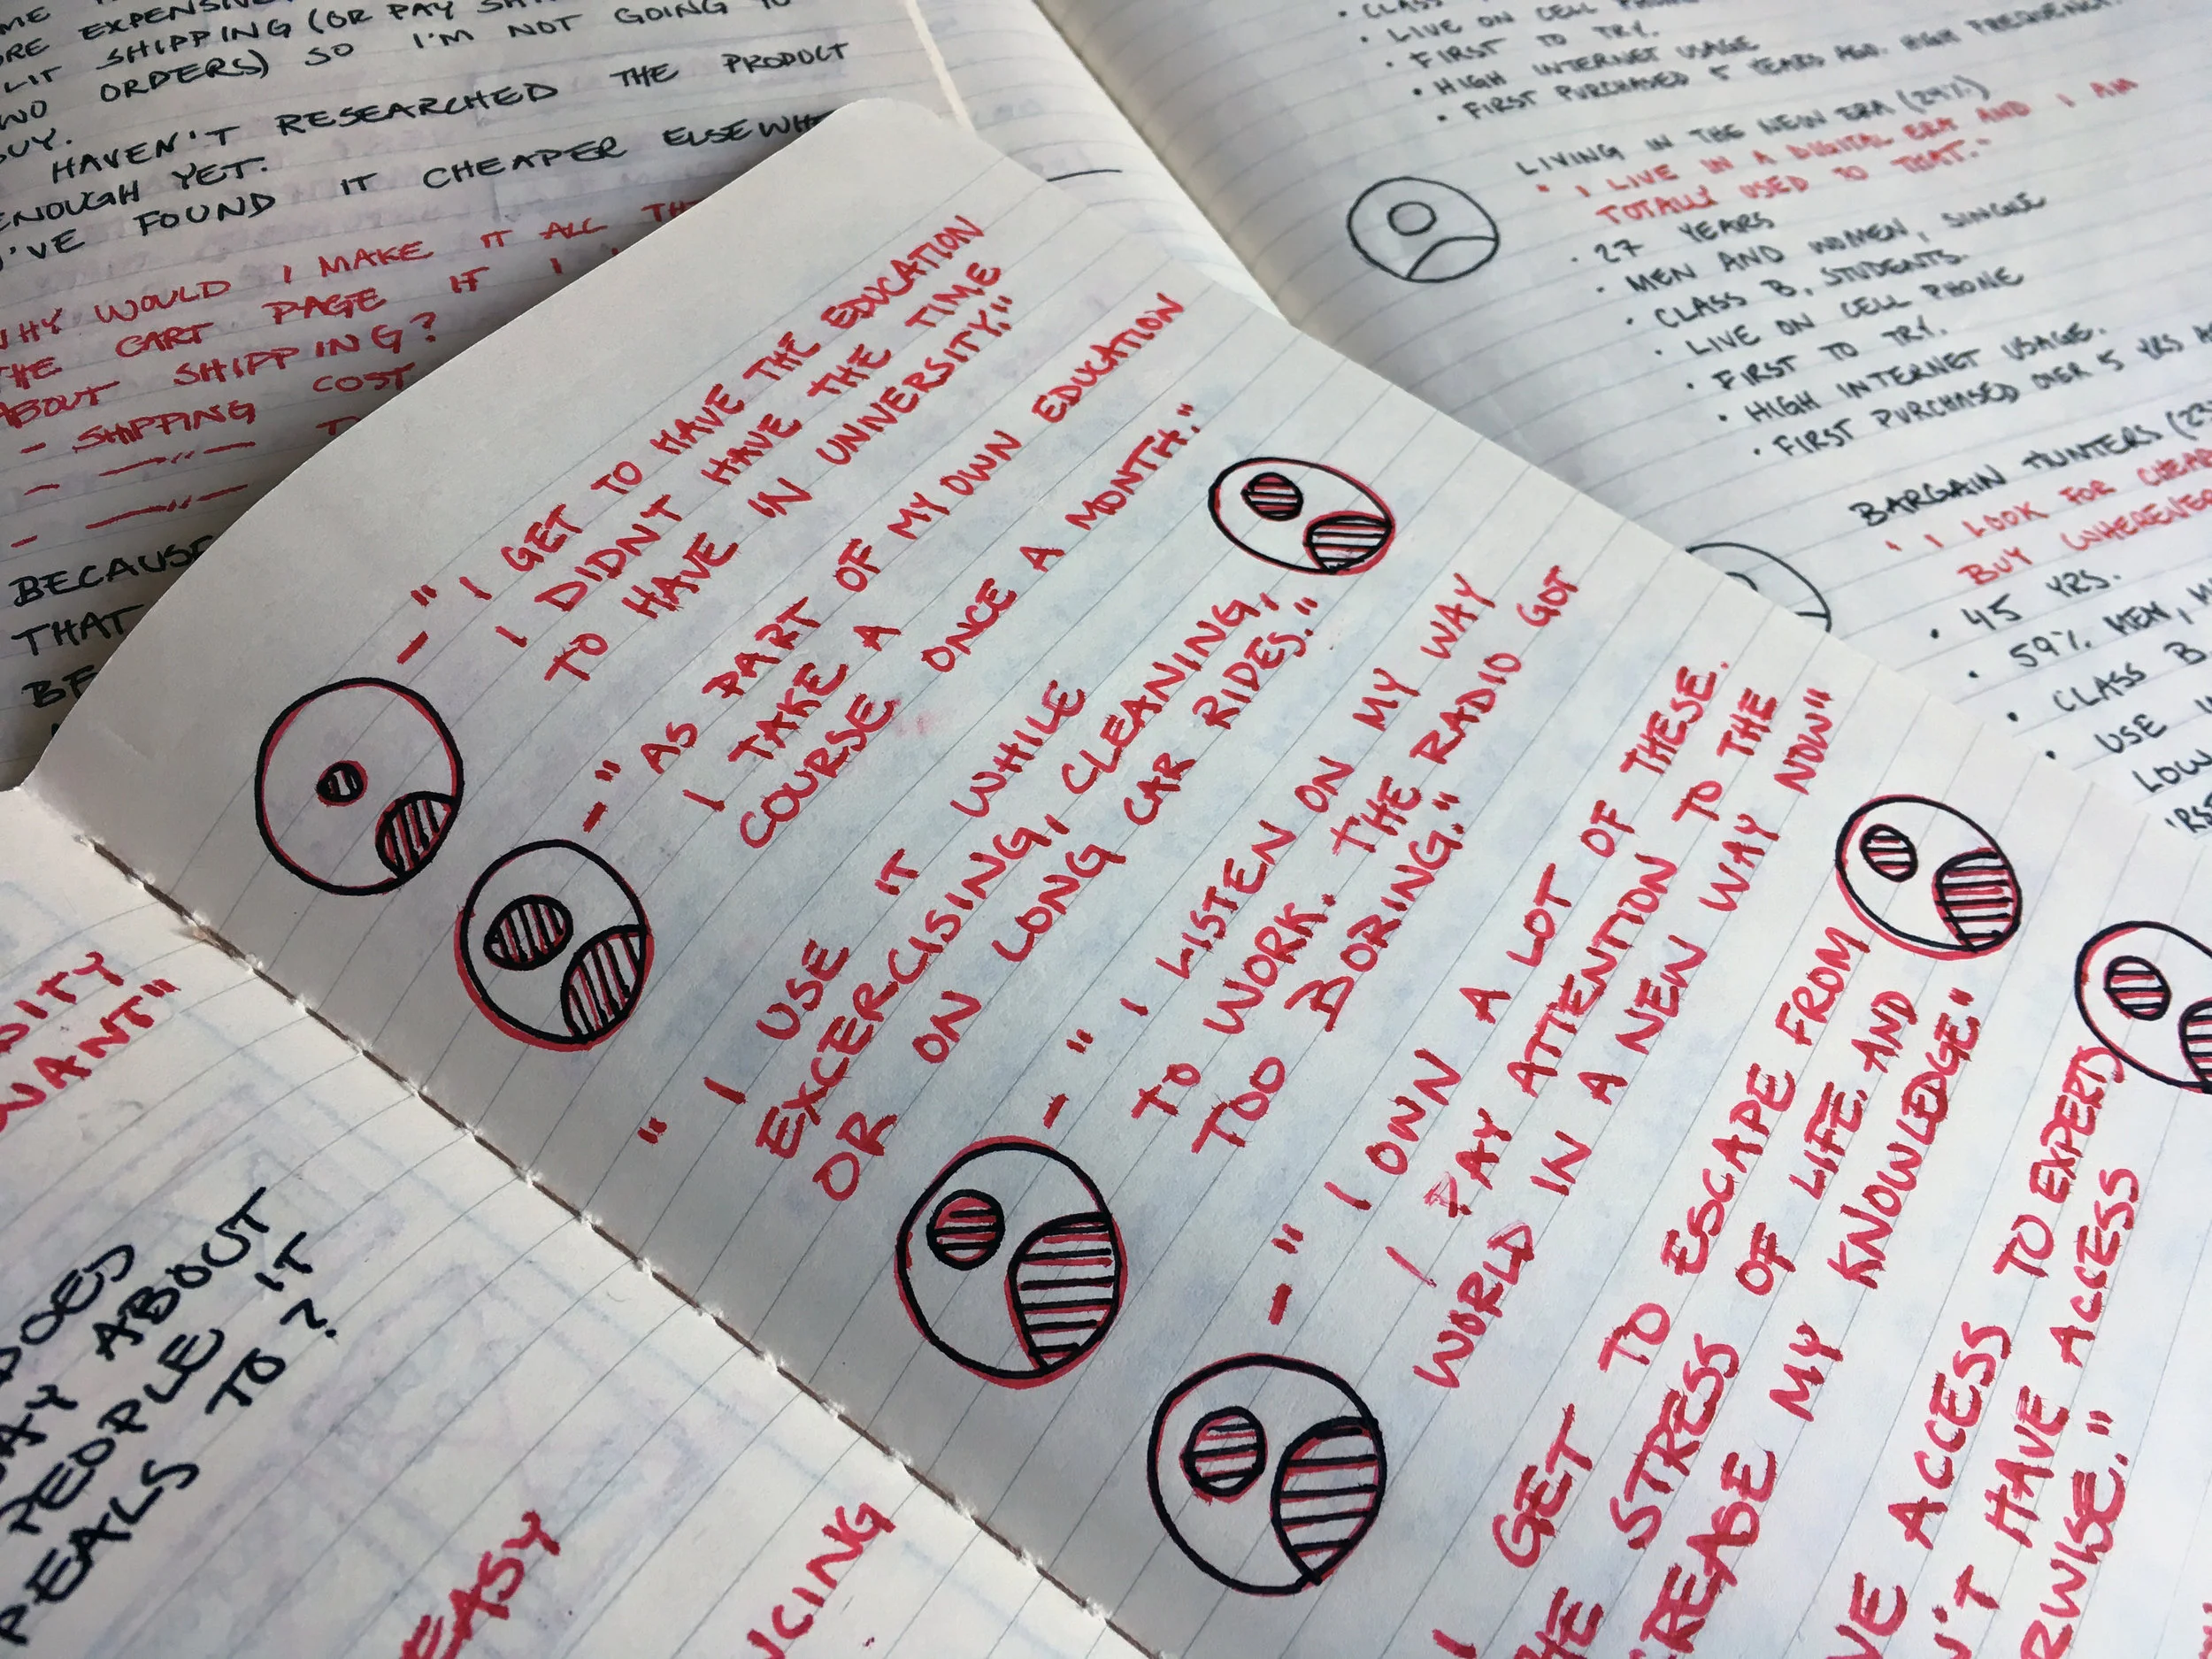 EXPENSIVE
SHIPPING (OR PAY
ORDERS) SO I'M NOT GOING TO
BUY.
HAVEN'T RESEARCHED THE PRODUCT
ENOUGH YET.
I'VE FOUND IT CHEAPER
WHY WOULD I MAKE IT ALL
THE CART PAGE IF I
ABOUT SHIPPING?
- SHIPPING COST
- —"—
- —"—
BECAUSE
THAT
- "I GET TO HAVE THE EDUCATION
I DIDN'T HAVE THE TIME
TO HAVE IN UNIVERSITY."
- "AS PART OF MY OWN EDUCATION
I TAKE A
COURSE ONCE A MONTH."
"I USE IT WHILE
EXCERCISING, CLEANING,
OR ON LONG CAR RIDES."
- "I LISTEN ON MY WAY
TO WORK. THE RADIO GOT
TOO BORING."
- "I OWN A LOT OF THESE.
I PAY ATTENTION TO THE
WORLD IN A NEW WAY NOW"
I GET TO ESCAPE FROM
STRESS OF LIFE AND
MY KNOWLEDGE."
ACCESS TO EXPERTS
HAVE ACCESS
• LIVE ON CELL PHONE
• FIRST TO TRY.
• HIGH INTERNET USAGE
• FIRST PURCHASED 5 YEARS AGO. HIGH FREQUENCY.
LIVING IN THE NEW ERA (24%)
"I LIVE IN A DIGITAL ERA AND I AM
TOTALLY USED TO THAT."
• 27 YEARS
• MEN AND WOMEN, SINGLE
• CLASS B, STUDENTS.
• LIVE ON CELL PHONE
• FIRST TO TRY.
• HIGH INTERNET USAGE.
• FIRST PURCHASED OVER 5 YRS
BARGAIN HUNTERS
"I LOOK FOR
BUY WHEREVER
• 45 YRS.
• 59% MEN,
• CLASS B
• USE
LOW
WANT"
ABOUT
PEOPLE IT
TO?
EASY